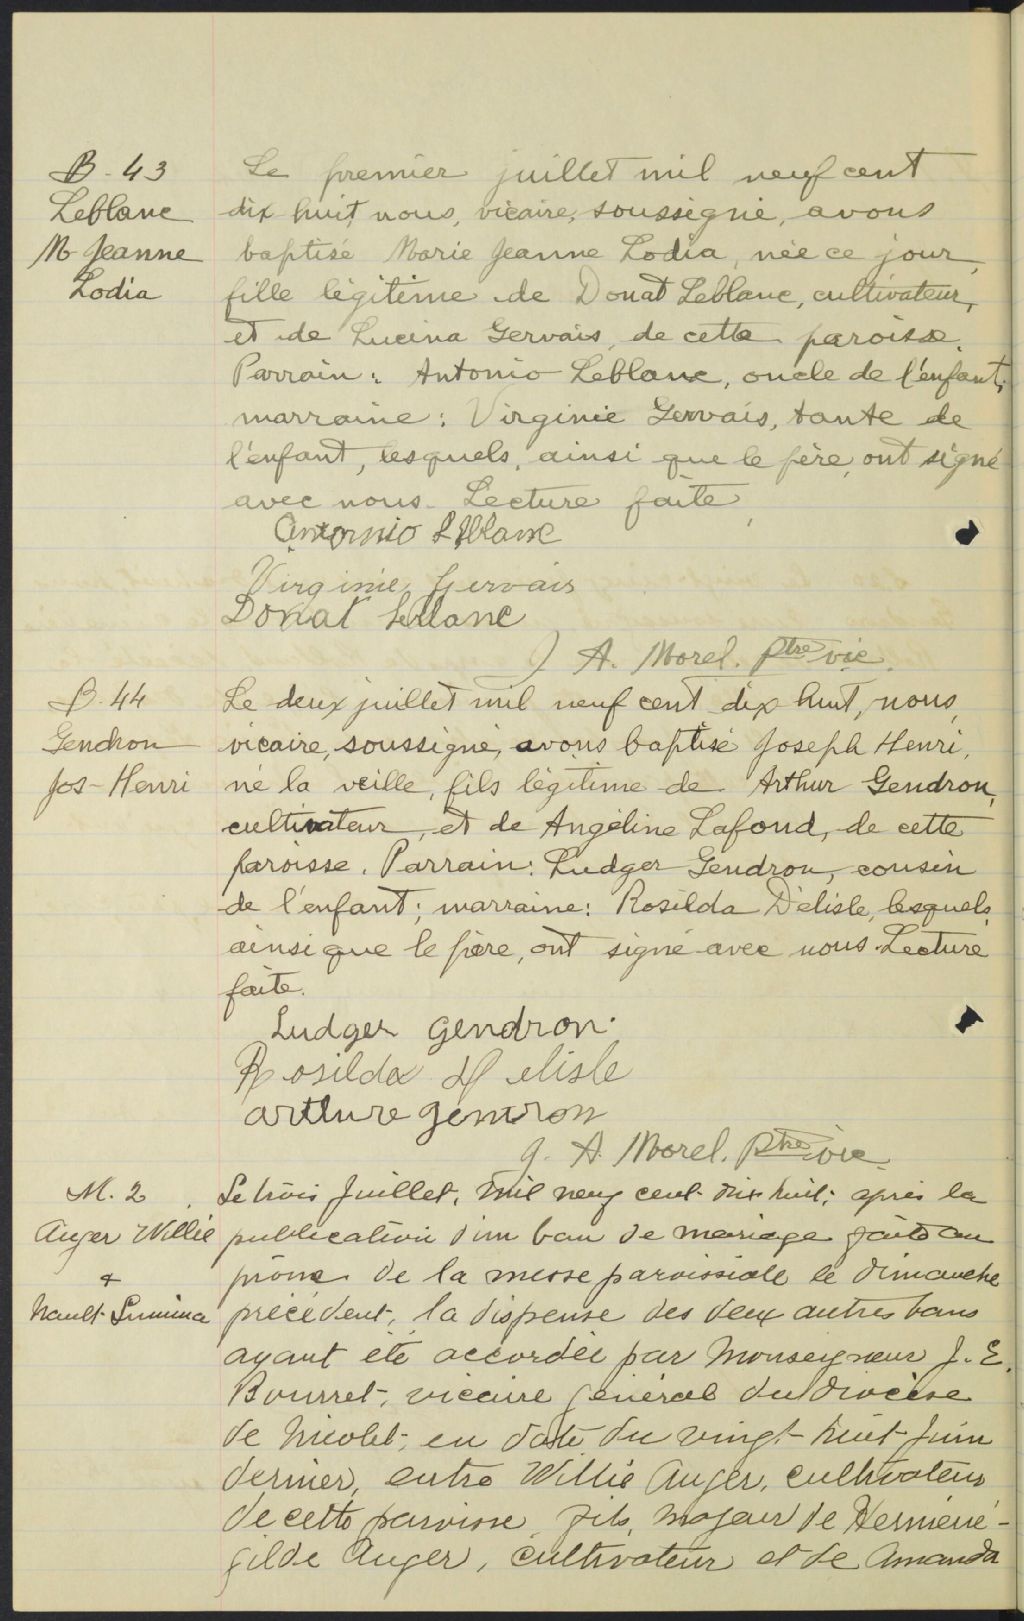 B. 43
Leblanc
M Jeanne
Lodia
Le premier juillet mil neuf cent
dix huit, nous, vicaire, soussigné, avons
baptisé Marie Jeanne Lodia, née ce jour,
fille légitime de Donat Leblanc, cultivateur,
et de Lucina Gervais, de cette paroisse.
Parrain: Antonio Leblanc, oncle de l'enfant;
marraine: Virginie Gervais, tante de
l'enfant, lesquels, ainsi que le père, ont signé
avec nous. Lecture faite
Antonio Leblanc
Virginie Gervais
Donat Leblanc
J. A. Morel. Ptre vic.
B. 44
Gendron
Jos-Henri
Le deux juillet mil neuf cent dix huit, nous,
vicaire, soussigné, avons baptisé Joseph Henri,
né la veille, fils légitime de Arthur Gendron,
cultivateur, et de Angéline Lafond, de cette
paroisse. Parrain: Ludger Gendron, cousin
de l'enfant; marraine: Rosilda Délisle, lesquels,
ainsi que le père, ont signé avec nous. Lecture
faite.
Ludger Gendron.
Rosilda Delisle
Arthure Gendron
J. A. Morel. Ptre vic.
M. 2
Auger Willie
&
Nault Lumina
Le trois Juillet, mil neuf cent dix huit; après la
publication d'un ban de mariage faite au
prône de la messe paroissiale le dimanche
précédent, la dispense des deux autres bans
ayant été accordée par Monseigneur J. E.
Bourret, vicaire général du diocèse
de Nicolet, en date du vingt-huit Juin
dernier, entre Willie Auger, cultivateur
de cette paroisse, fils, majeur de Herméné-
gilde Auger, cultivateur et de Amanda